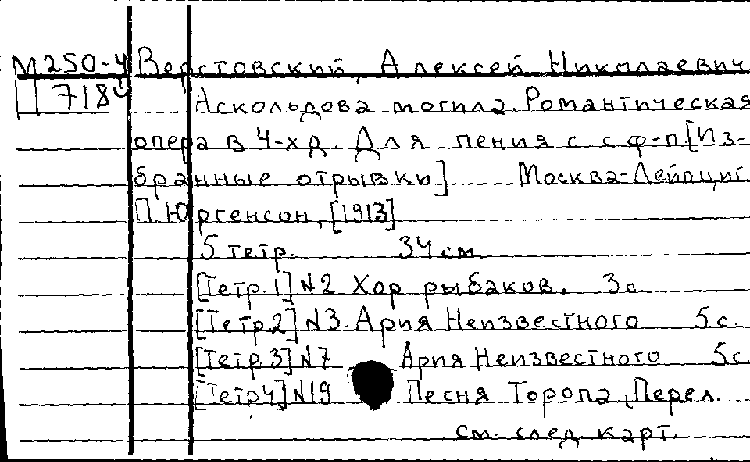 М 250-4 Верстовский, Алексей Николаевич
7184 Аскольдова могила. Романтическая
опера в 4-х д. Для пения с ф-п. [Из-
бранные отрывки] Москва-Лейпциг
П. Юргенсон, [1913]
5 тетр. 34 см.
[Тетр. 1] №2 Хор рыбаков. 3 с.
[Тетр. 2] №3. Ария Неизвестного 5 с.
[Тетр. 3] №7 Ария Неизвестного 5 с.
[Тетр 4] №19 Песня Торопа. Перел.
см. след. карт.